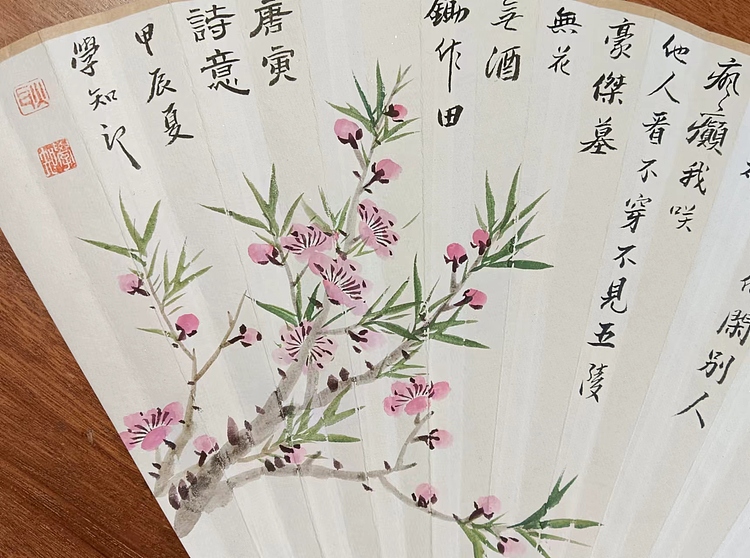 閑別人
瘋癲我咲
他人看不穿不見五陵
豪傑墓
無花
无酒
鋤作田
唐寅
詩意
甲辰夏
學知記